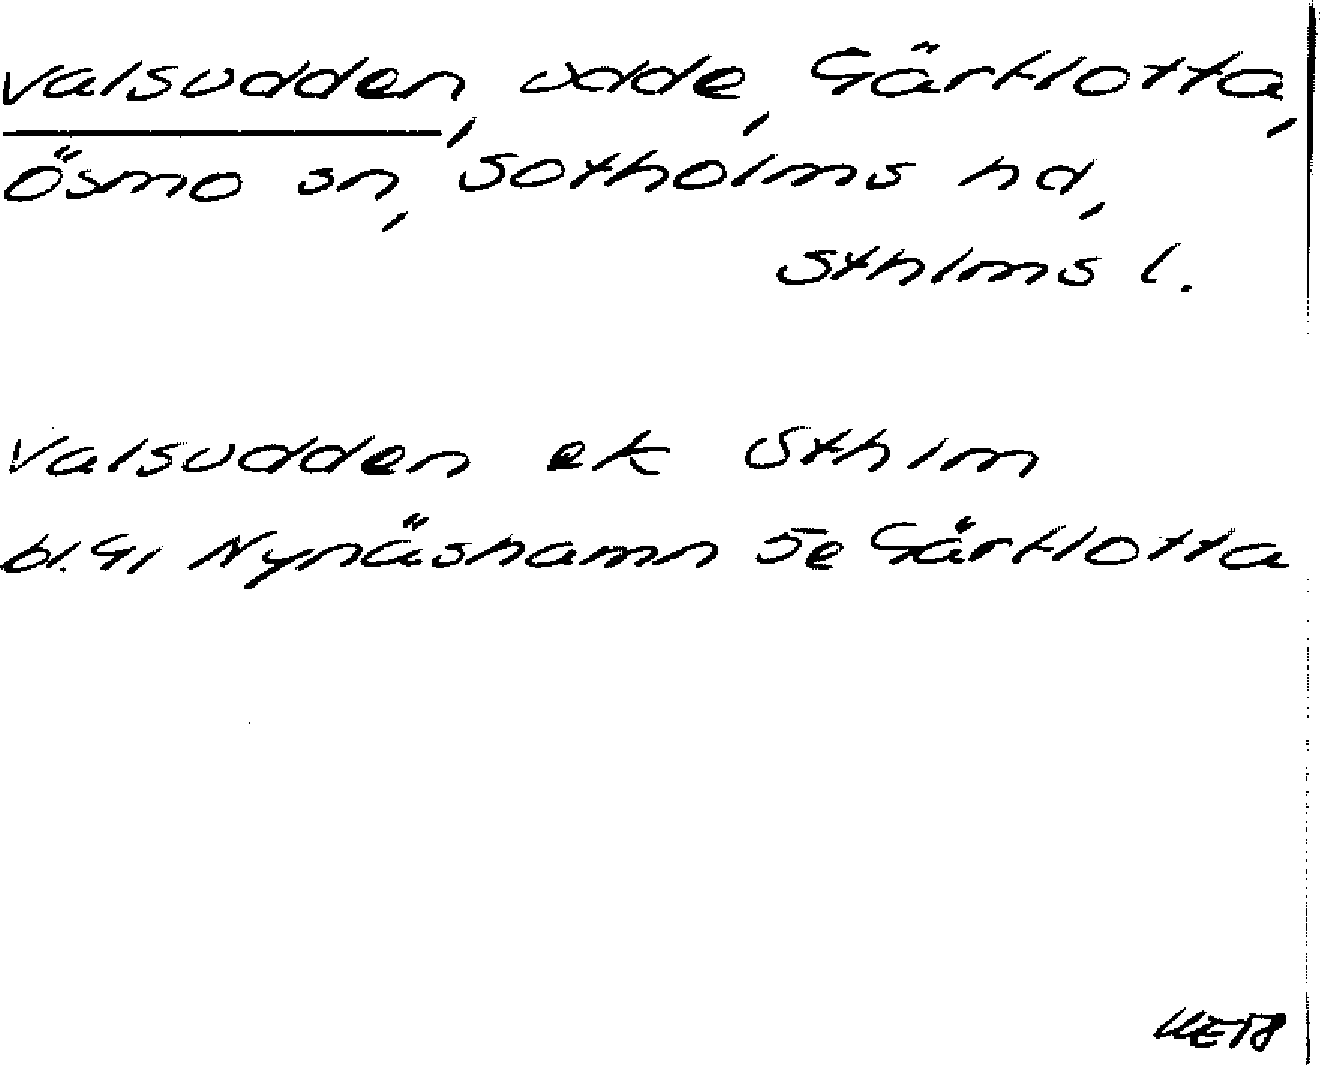 Valsudden, udde, Gårklotta,
Ösmo sn, Sotholms hd,
Sthlms l.
Valsudden ek Sthlm
bl.91 Nynäshamn 5e Gårklotta